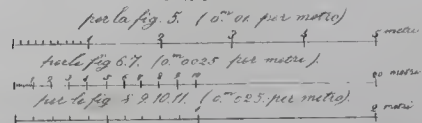 per la fig. 5. (0.ᵐ01. per metro)
1 2 3 4 5 metri
per le fig 6.7. (0.ᵐ0025 per metro).
1 2 3 4 5 6 7 8 9 10 20 metri
per le fig 8 9.10.11. (0.ᵐ025. per metro).
2 metri